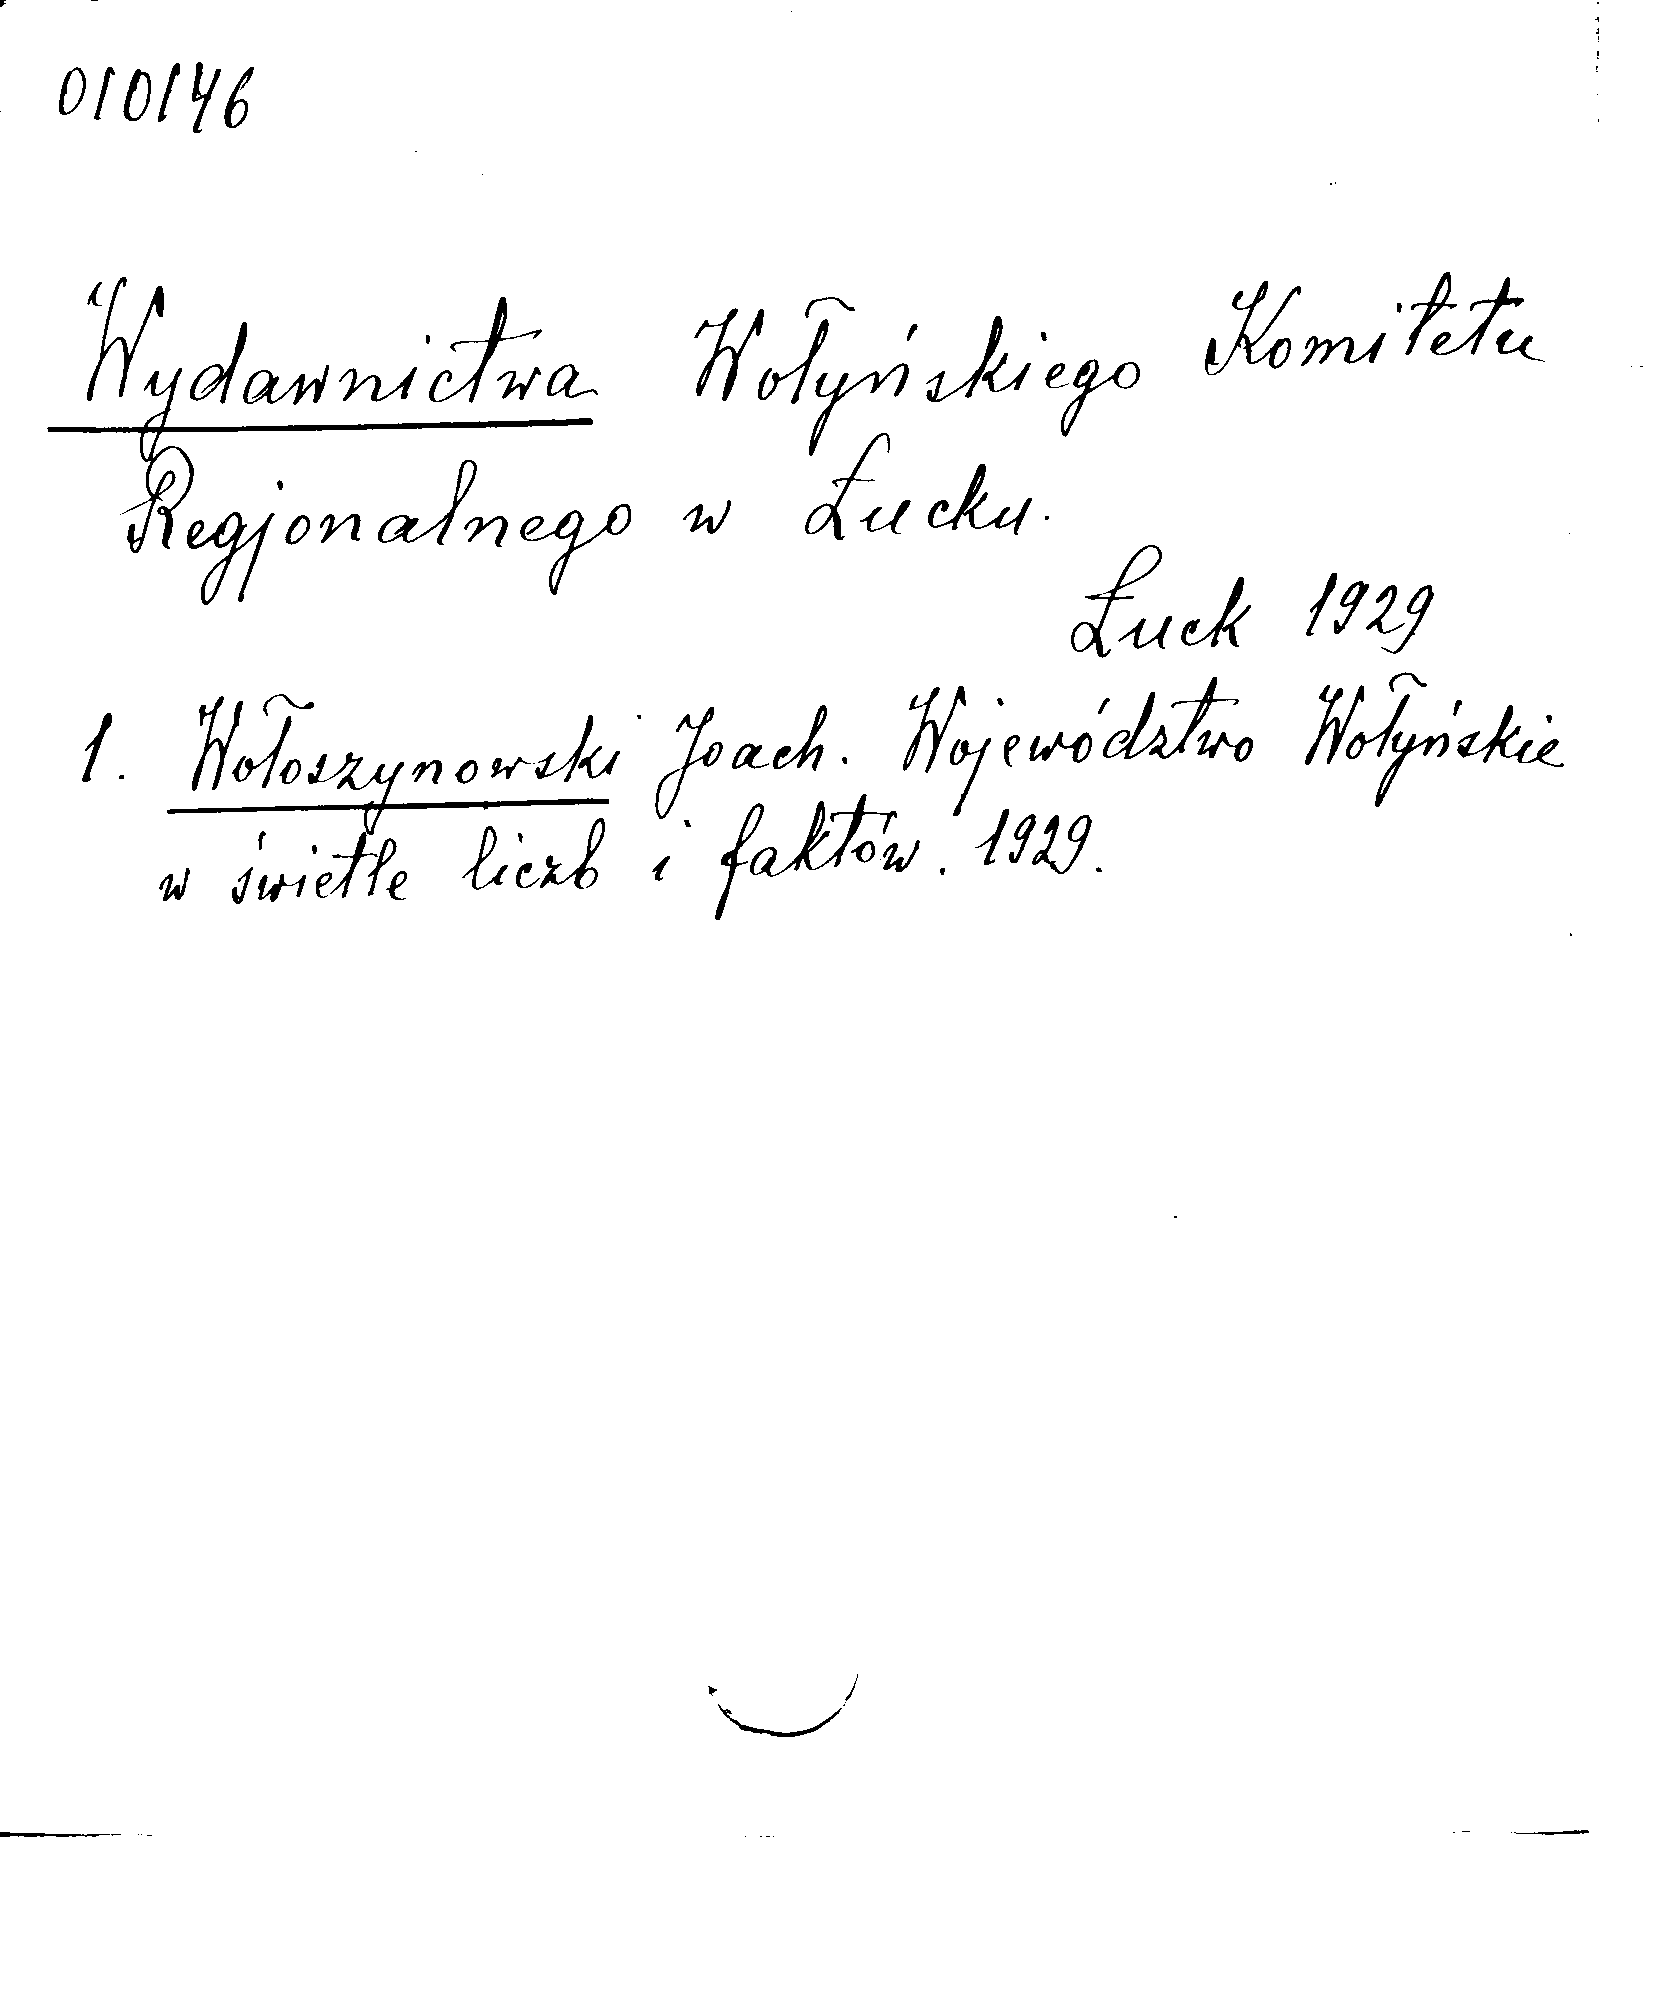 010146
Wydawnictwa Wołyńskiego Komitetu
Regjonalnego w Łucku.
Łuck 1929
1. Wołoszynowski Joach. Województwo Wołyńskie
w świetle liczb i faktów. 1929.